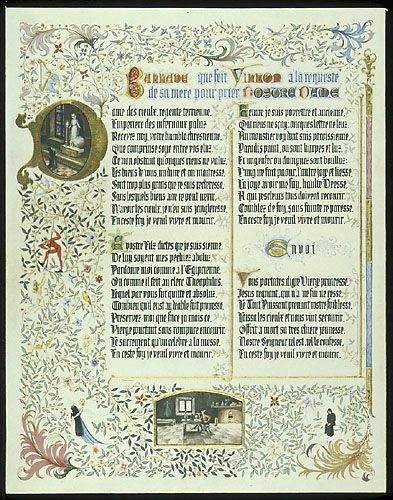 Ballade que feit Villon a la requeste
de sa mere pour prier Nostre Dame
Dame des cieulx, regente terrienne,
Emperiere des infernaux paluz,
Recevez moy, votre humble chrestienne,
Que comprinse soye entre vos esleuz,
Ce non obstant qu'oncques riens ne valuz.
Les biens de vous, ma dame et ma maistresse,
Sont trop plus grans que ne suis pecheresse,
Sans lesquels biens ame ne peut merir
N'avoir les cieulx, je n'en suis jengleresse.
En ceste foy je veuil vivre et mourir.
A vostre Filz dictes que je suis sienne.
De luy soyent mes pechez aboluz.
Pardonne moy comme a l'Egipcienne,
Ou comme il feit au clerc Theophilus,
Lequel par vous fut quitte et absoluz,
Combien qu'il eust au deable fait promesse.
Preservez moy que face ja mais ce,
Vierge portant sans rompure encourir
Le sacrement qu'on celebre a la messe.
En ceste foy je veuil vivre et mourir.
Femme je suis povrette et ancienne,
Qui riens ne sçay, oncques lettre ne leuz.
Au moustier voy dont suis parroissienne,
Paradis paint, ou sont harpes et luz,
Et ung enfer ou dampnez sont boulluz.
L'ung me fait paour, l'autre joye et liesse.
La joye avoir me fay, haulte Deesse,
A qui pecheurs tous doivent recourir,
Comblez de foy, sans fainte ne paresse.
En ceste foy je veuil vivre et mourir.
Envoi
Vous portastes, digne Vierge, princesse,
Jesus regnant, qui n'a ne fin ne cesse.
Le Tout Puissant, prenant nostre foiblesse,
Laissa les cieulx et nous vint secourir,
Offrit a mort sa tres chiere jeunesse.
Nostre Seigneur tel est, tel le confesse.
En ceste foy je veuil vivre et mourir.